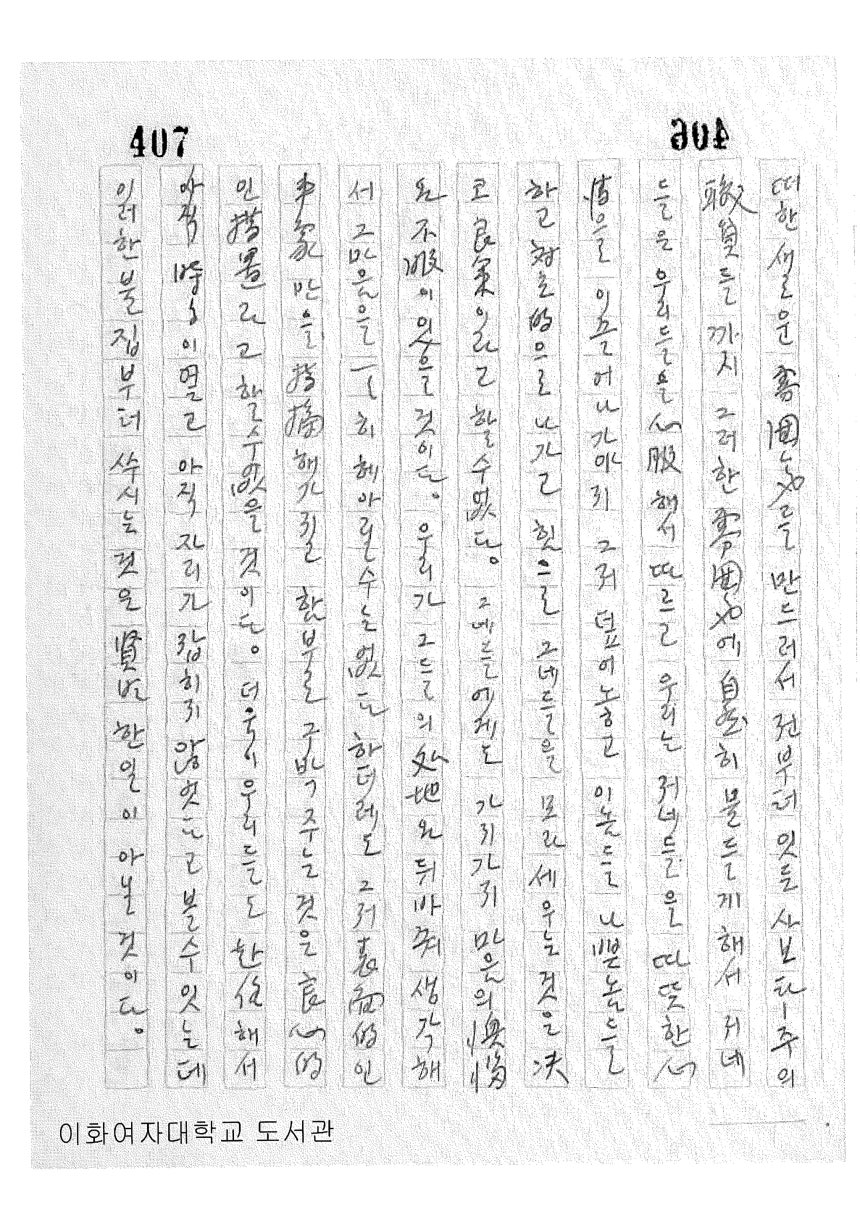 407
406
떠한 새로운 雰圍氣를 만드러서 전부터 잇든 사보타-주의
職員들까지 그러한 雰圍氣에 自然히 물들게 해서 저네
들은 우리들을 心服해서 따르고 우리는 저네들을 따뜻한 心
情으로 이끌어나가야지 그저 덮어놓고 이놈들 나쁜놈들
하고 対立的으로 나가고 힘으로 그네들을 모라세우는 것은 決
코 良策이라고 할 수 없다. 그네들에게도 가지가지 마음의 惧惱
와 不服이 잇을 것이다. 우리가 그들의 処地와 뒤바꿔 생각해
서 그 마음을 一一히 헤아릴 수는 없다 하더래도 그저 表面的인
事象만을 指摘해가지고 함부로 구박주는 것은 良心的
인 措置라고 할 수 없을 것이다. 더욱이 우리들도 한 해서
아직 이 엷고 아직 자리가 잡히지 않엇다고 볼 수 잇는데
이러한 불집부터 쑤시는 것은 賢明한 일이 아닐 것이다.
이화여자대학교 도서관